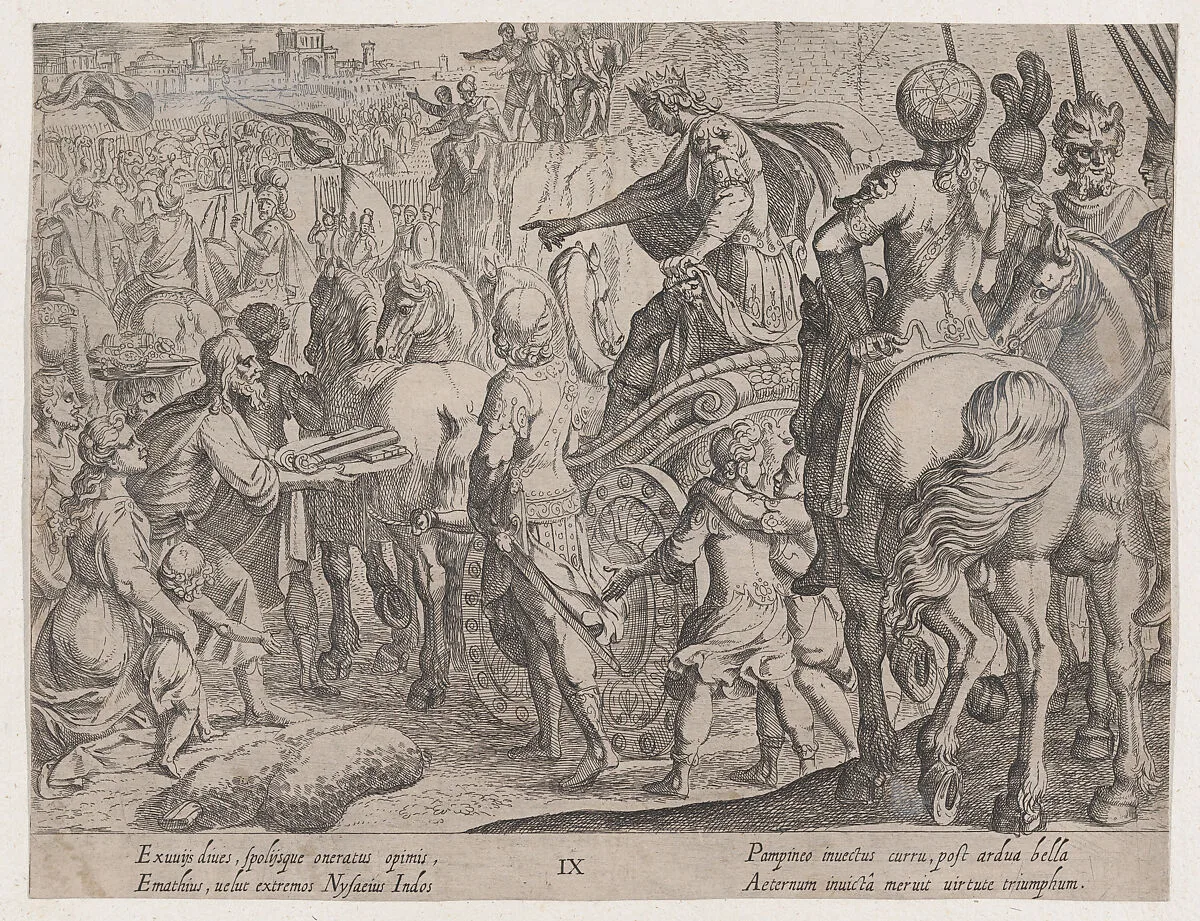 Exuuijs diues, spolijsque oneratus opimis,
Emathius, uelut extremos Nysaeius Indos
IX
Pampineo inuectus curru, post ardua bella
Aeternum inuictâ meruit uirtute triumphum.